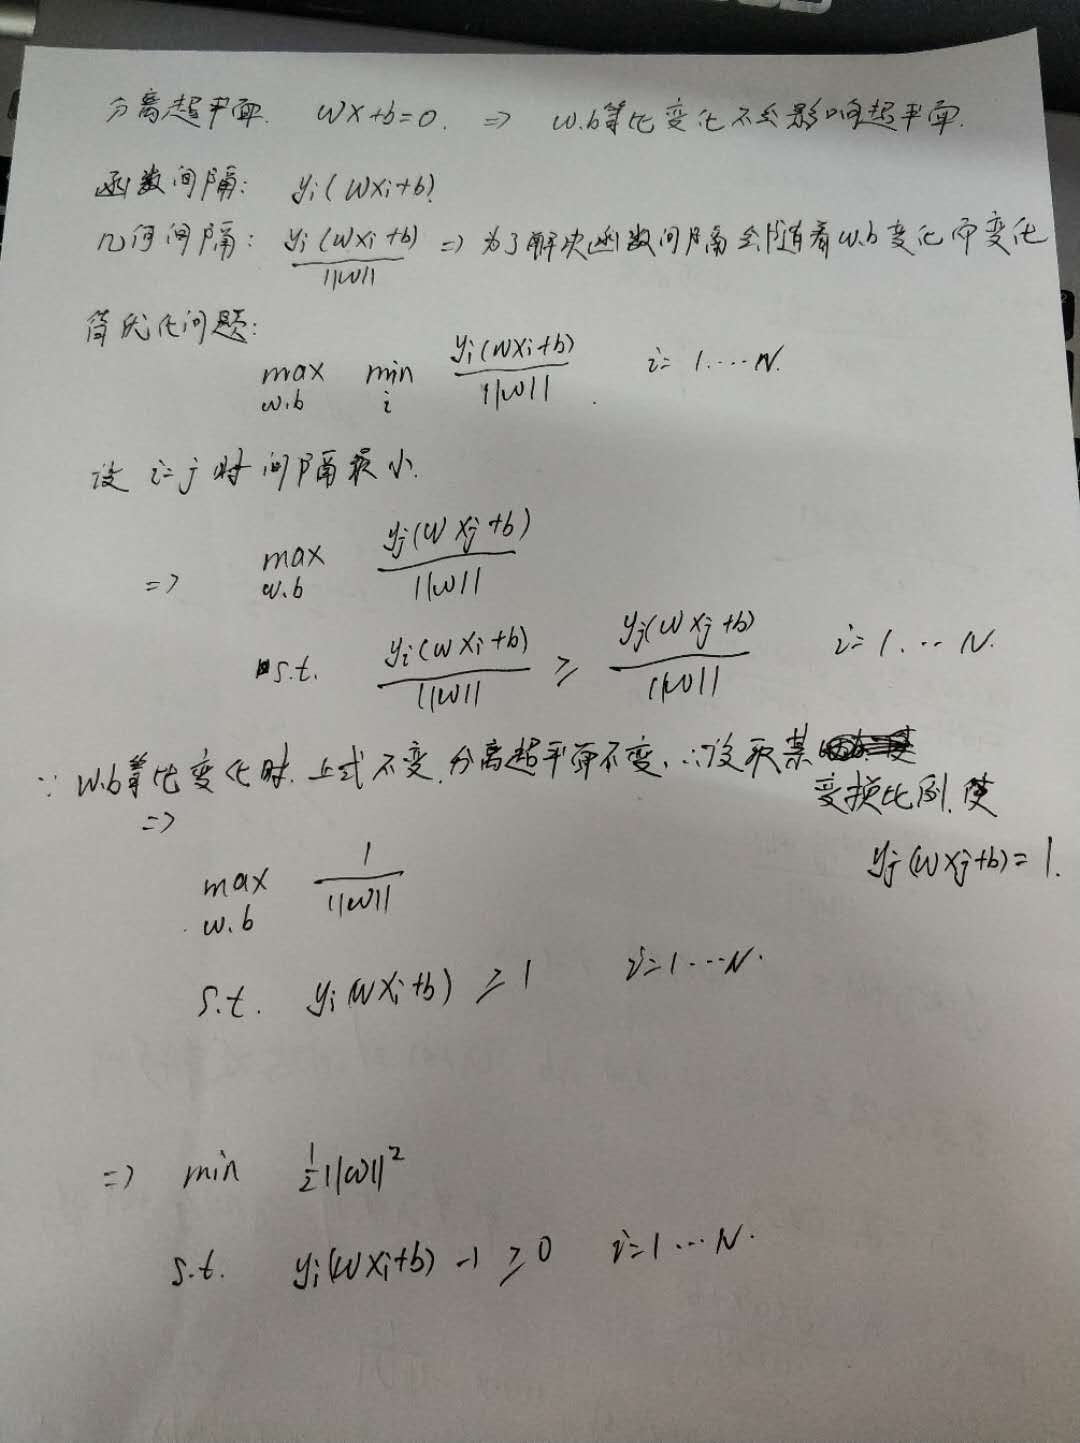 分离超平面. wx+b=0. => w.b等比变化不会影响超平面.
函数间隔: yi(wxi+b)
几何间隔: yi(wxi+b)/||w|| => 为了解决函数间隔会随着w.b变化而变化
等优化问题:
max w.b min i yi(wxi+b)/||w|| i=1....N.
设 i=j 时间隔最小.
=> max w.b yj(wxj+b)/||w||
s.t. yi(wxi+b)/||w|| ≥ yj(wxj+b)/||w|| i=1...N.
∵ w.b等比变化时.上式不变.分离超平面不变.∴设取某
变换比例,使
=>
yj(wxj+b)=1.
max w.b 1/||w||
s.t. yi(wxi+b) ≥ 1 i=1...N.
=> min ½||w||²
s.t. yi(wxi+b) -1 ≥ 0 i=1...N.